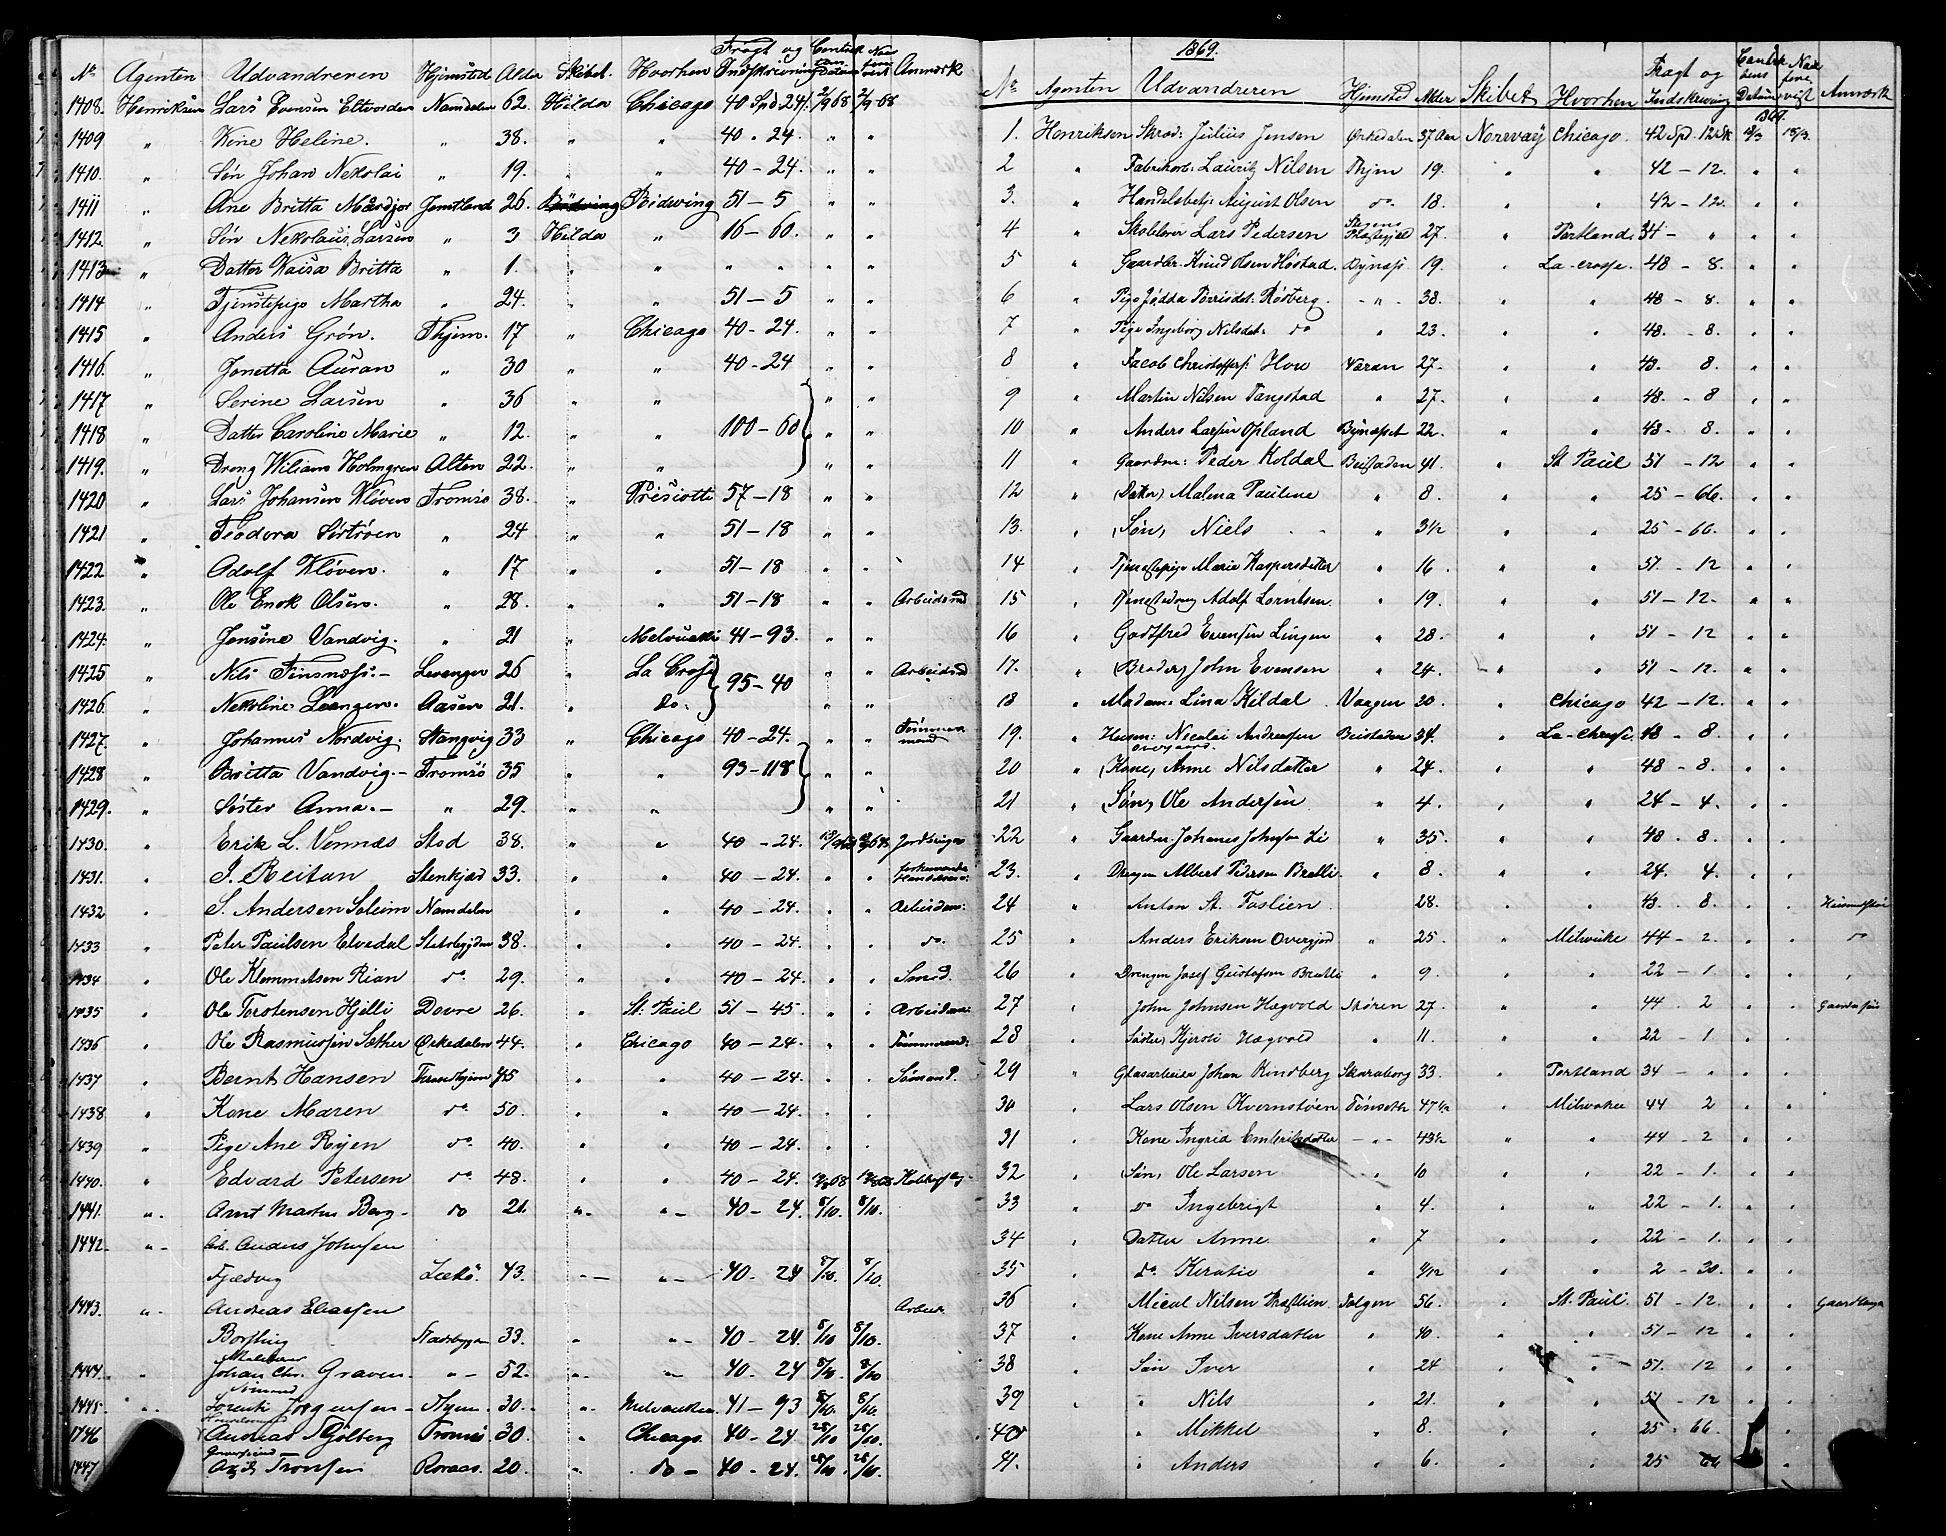 No Agenten Udvandreren Hjemsted Alder Skibet. Hvorhen Fragt og Indskrivning Anmærk
1408. Henriksen Lars Evensen Namdalen 62. Hilda Chicago 40 Spd 24 2/9 68 2/9 68
1409 " Kone Heline. " 38. " " 40 - 24. " "
1410. " Søn Johan Nekolai " 19. " " 40 - 24. " "
1411 " Ane Britta Jemtland 26. Hilda Ridewing 51 - 5 " "
1412. " Søn Nekolaus Larsen " 3 Hilda " 16 - 60. " "
1413 " Datter Kaisa Britta " 1. " " " " " "
1414 " Tjenstepige Martha " 24. " " 51 - 5 " "
1415 " Anders Grøn. Thjem. 17 " Chicago 40 - 24. " "
1416. " Jonetta Auran " 30 " " 40 - 24 " "
1417 " Serine Larsen " 36 " " " "
1418 " Datter Caroline Marie " 12. " " 100 - 60 " "
1419. " Dreng Wiliam Holmgren Alten 22. " " " "
1420 " Lars Johansen Kløven Tromsø 38. " 57 - 18 " "
1421 " Teodora Sørtrøen " 24 " " 51 - 18 " "
1422 " Adolf Kløven. " 17 " " 51 - 18 " "
1423. " Ole Enok Olsen. " 28. " " 51 - 18 " " Arbeidsmd
1424. " Jensine Vandvig. " 21 " Melvuekki 41 - 93. " "
1425 " Nils Finsnæs. - Levanger 26 " La Cross 95 - 40 " " Arbeidsmd
1426. " Nekoline Leangen. Aasen 21. " do. " "
1427. " Johannes Nordvig. Stangvig 33 " Chicago 40 - 24. " " Tømmermand
1428 " Britta Vandvig. - Tromsø 35 " " 93 - 118 " "
1429. " Søster Anna. - " 29. " " " "
1430. " Erik L. Vennæs Stod 38. " " 40 - 24.
1431. " J. Reitan Stenkjær 33. " " 40 - 24. " "
1432 " S. Andersen Soleim Namdalen " " 40 - 24. " " Arbeidsm:
1433 " Peter Paulsen Elvedal 38. " " 40 - 24. " " do.
1434 " Ole Klemmetsen Rian do 29. " " 40 - 24. " " Smed.
1435 " Ole Torstensen Hjelli Dovre 26. " St. Paul 51 - 45. " " Arbeidsm:
1436 " Ole Rasmussen Sæther Ørkedalen 44. " Chicago 40 - 24. " " Tømmermd:
1437 " Bernt Hansen Trondhjem 45 " " 40 - 24. " " Sømand.
1438. " Kone Maren do. 50. " " 40 - 24. " "
1439 " Pige Ane Ryen do 40. " " 40 - 24. " "
1440. " Edvard Petersen do. 48. " " 40 - 24.
1441. " Arnt Martin Berg - do 21. " " 40 - 24. 8/10. 8/10.
1442. " Arb. Anders Johnsen
Fjædvig Lekø. 43. " " 40 - 24 8/10. 8/10
1443. " Andreas Eliassen Arbeid
Borsting Stadsbygden 33. " " 40 - 24. 8/10 8/10.
1444. " Johan Chr. Graven. " 52. " " 40 - 24 8/10 8/10
1445. " Lorents Jørgensen - Thjem. 30. " Milvaukee. 41 - 93 8/10. 8/10.
1446 Andreas Kjølberg Tromsø 30. " Chicago. 40 - 24 28/10 28/10.
1447 Tronsen Roraas. 20. " do - 40 - 24. 28/10. 28/10.
1869.
No. Agenten Udvandreren Hjemsted Alder Skibet Hvorhen Fragt og Indskrivning Datum Anmærk
1869.
1. Henriksen Skræd: Julius Jensen Ørkedalen 37 Aar Norway Chicago. 42 Spd. 12 Sk 15/3 15/3.
2 " Fabrikarb: Lauritz Nilsen Thjem 19. " " 42 - 12. " "
3. " Handelsbetj: August Olsen do. 18. " " 42 - 12. " "
4 " Lars Pedersen 27. " Portland. 34 - " " "
5 " Gaardbr. Knud Olsen Høstad. Bynæss. 19. " La-crosse. 48 - 8. " "
6 " Pige Jødda Røsberg. - " - 38. " " 48 - 8. " "
7 " Pige Ingeborg Nilsdat: do " 23. " " 48. - 8. " "
8 " Jacob Christoffers: Hov Naran 27. " " 48. 8. " "
9 " Martin Nilsen Tangstad " 27. " " 48. - 8 " "
10 " Anders Larsen Opland Bynæsset 22. " " 48 - 8. " "
11 " Gaardm: Peder Koldal Beitstaden 41. " St Paul 51 - 12 " "
12 " (Datter) Malena Pauline " 8. " " 25 - 66. " "
13. " (Søn) Niels " 3 1/2 " " 25 - 66. " "
14 " Tjenestepige Marie Kaspersdatter " 16. " " 51. - 12 " "
15 " Tjenestedreng Adolf Lorntsen " 19. " " 51 - 12. " "
16 " Godtfred Evensen Lingen " 28. " " 51 - 12 " "
17. " (Broder) John Evensen " 24. " " 51 - 12. " "
18 " Madam: Lina Kildal Vaagen 30. " Chicago 42 - 12. " "
19. " Husm: Nicolai Andersen Overgaard Beitstaden 34. " La-Chrosse. 48 - 8. " "
20 " (Kone) Anne Nilsdatter " 24. " " 48 - 8. " "
21 " (Søn) Ole Andersen " 4. " " 24 - 4. " "
22 " Gaardm. Johanes Johnsen Li " 35. " " 48 - 8. " "
23. " Drengen Albert Pedersen Brelli. " 8. " " 24. 4. " "
24 " Anton St. Foslien " 28. " " 48. 8. " "
25 " Anders Eriksen Overgjerd " 25. " Milvuke 44 - 2. " " do
26 " Drengen Josef Gustafsen Bratli " 9. " " 22 - 1. " " "
27 " John Johnsen Hægvold Støren 27. " " 44 2 " "
28 " Søster Kjersti Hægvold " 11. " " 22 - 1. " "
29 " Glasarbeider Johan Rindberg Skaraborg 33. " Portland 34 - " " "
30 " Lars Olsen Kvernstøen Tønset 47 1/2 " Milvaukee 44 2 " "
31 " Kone Ingrid Embriksdatter - " - 43 1/2 " " 44 - 2 " "
32 " Søn, Ole Larsen " 10 " " 22 - 1. " "
33 " do Ingebrigt " 4. " " 22 - 1. " "
34 " Datter Anne " 7 " " 22 - 1. " "
35 " do. Keratie " " " 2 - 30. " "
36 " Micul Nilsen Tolgen 56. " St. Paul. 51 - 12 " "
37 " Kone Anne Iversdatter " 40. " " 51 - 12 " "
38 " Søn Iver " 24 " " 51. 12 " "
39 " " Nils " 21. " " 51 - 12 " "
40 " " Mikkel " 8. " " 25 - 66. "
41. " " Anders " 6. " " 25 66 "